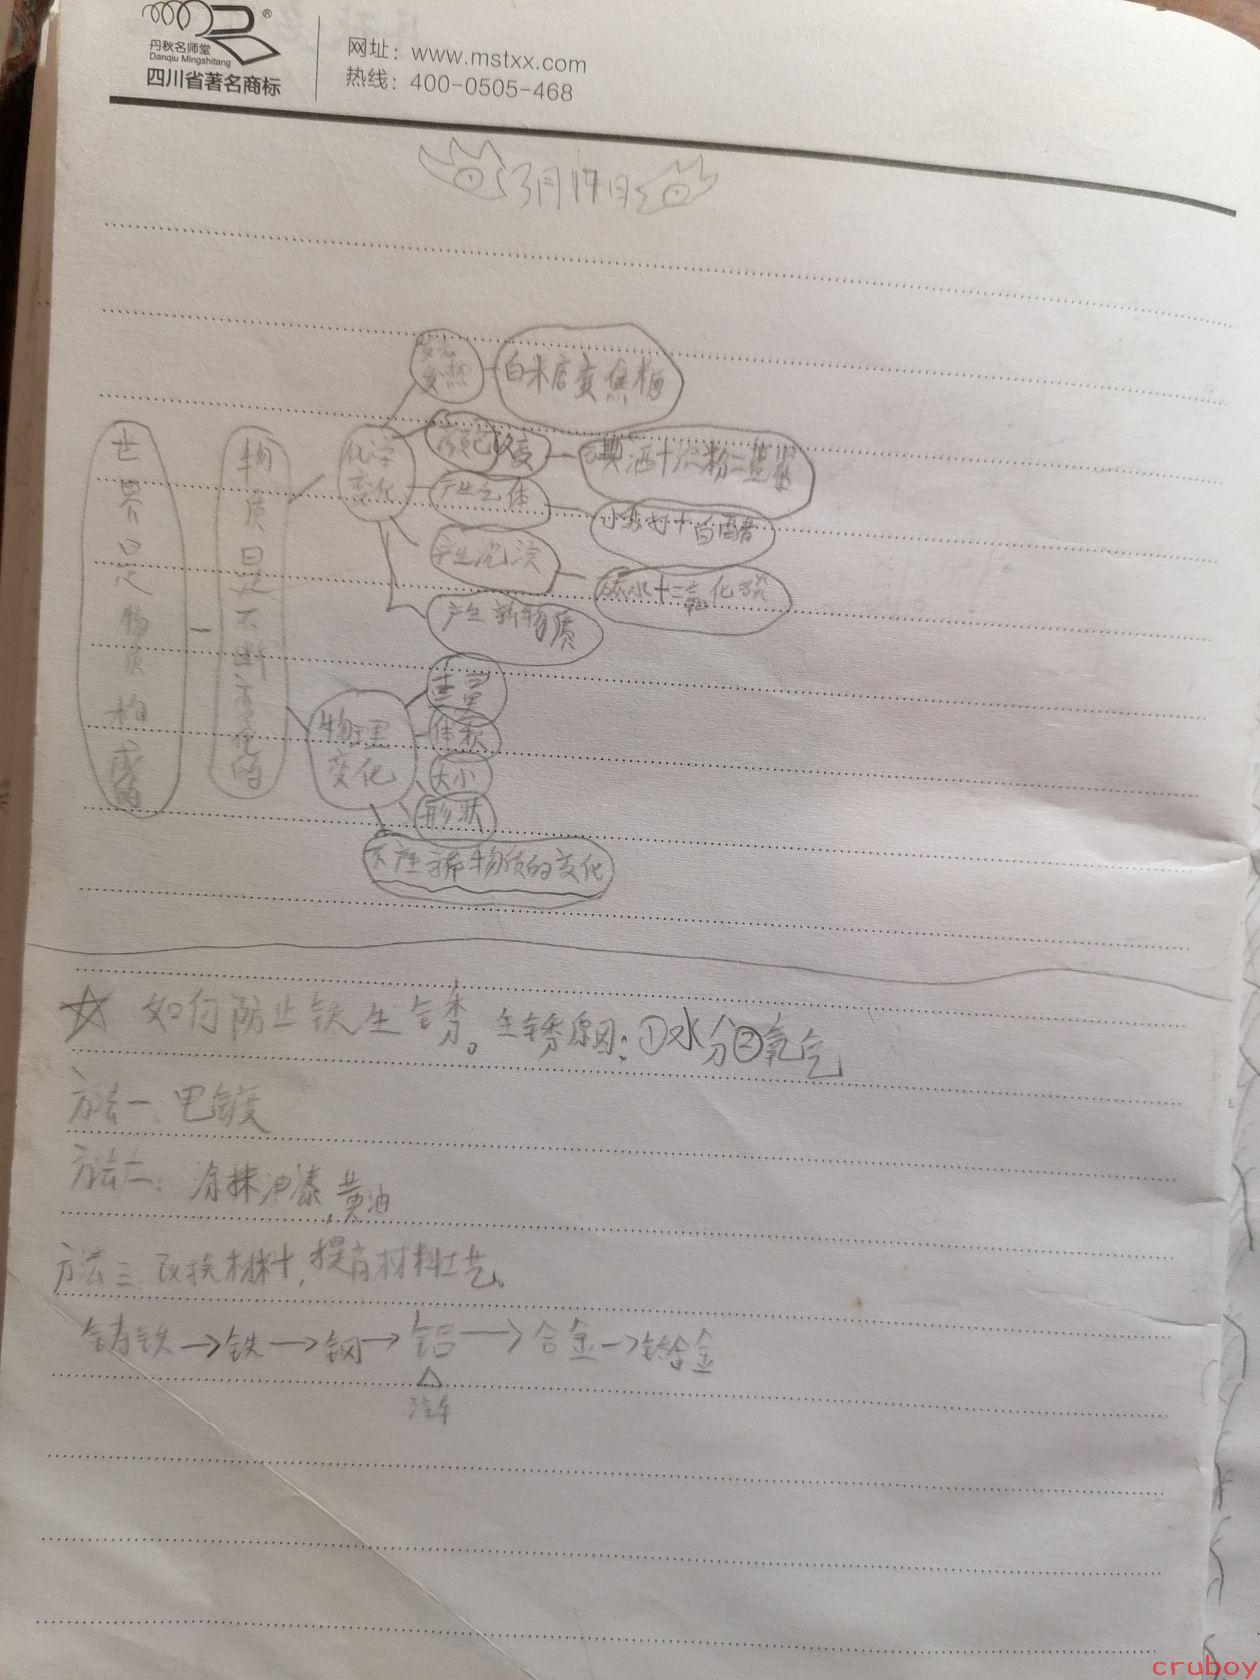 丹秋名师堂
Danqiu Mingshitang
四川省著名商标
网址：www.mstxx.com
热线：400-0505-468
3月17日
世界是物质构成的
物质是不断变化的
化学变化
发光发热
白米唐变焦糖
颜色改变
碘酒+淀粉=蓝紫
产生气体
小苏打+白醋
产生沉淀
石灰水+二氧化碳
产生新物质
物理变化
重量
体积
大小
形状
不产生新物质的变化
☆ 如何防止铁生锈。生锈原因：①水分②氧气
方法一：电镀
方法二：涂抹油漆，黄油
方法三：改换材料，提高材料工艺。
铸铁→铁→钢→铝→合金→钛合金
汽车
cruboy